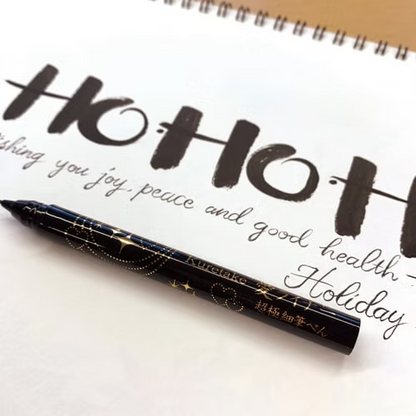 HO·HO·H
shing you joy, peace and good health-
Holiday
Kuretake
超極細筆ぺん